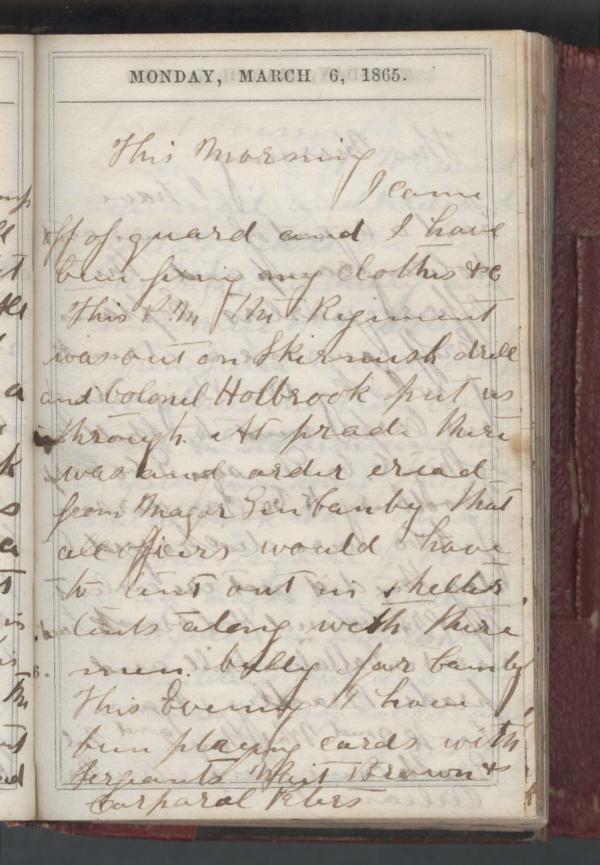 MONDAY, MARCH 6, 1865.
This Morning
I came
off of guard and I have
bin fixing my clothes &c
This P.M. the Regiment
was out on Skirmish drill
and Colonel Holbrook put us
through. At prade there
was and order eread
from Magor Gen Canby that
all officers would have
to out in shelter
tents along with there
men. bully for Canby
This Evening I have
bin playing cards with
Sergants Wait Brown &
Corparal Peters